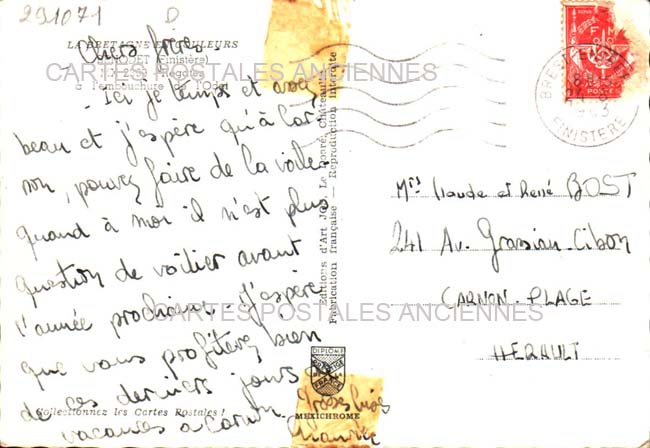 291071 D
LA BRETAGNE EN COULEURS
BENODET (Finistère)
à l'embouchure de l'Odet
CARTES POSTALES ANCIENNES
Chers frères
Ici je temps et assez
beau et j'espère qu'à Car
non, pouvez faire de la voile
quand à moi il n'est plus
question de voilier avant
l'année prochaine, j'espère
que vous profiterez bien
de ces derniers jours
vacances a Carnon
Grosses bises
Collectionnez les Cartes Postales !
Editions d'Art Jos Le Doaré, Châteaulin
Fabrication française - Reproduction interdite
DIPLOME
PRESTIGE
FRANCE
MEXICHROME
F M
POSTES
BREST
1963
FINISTERE
Mrs Claude et René BOST
241 Av. Grassion-Cibon
CARNON-PLAGE
HERAULT
CARTES POSTALES ANCIENNES